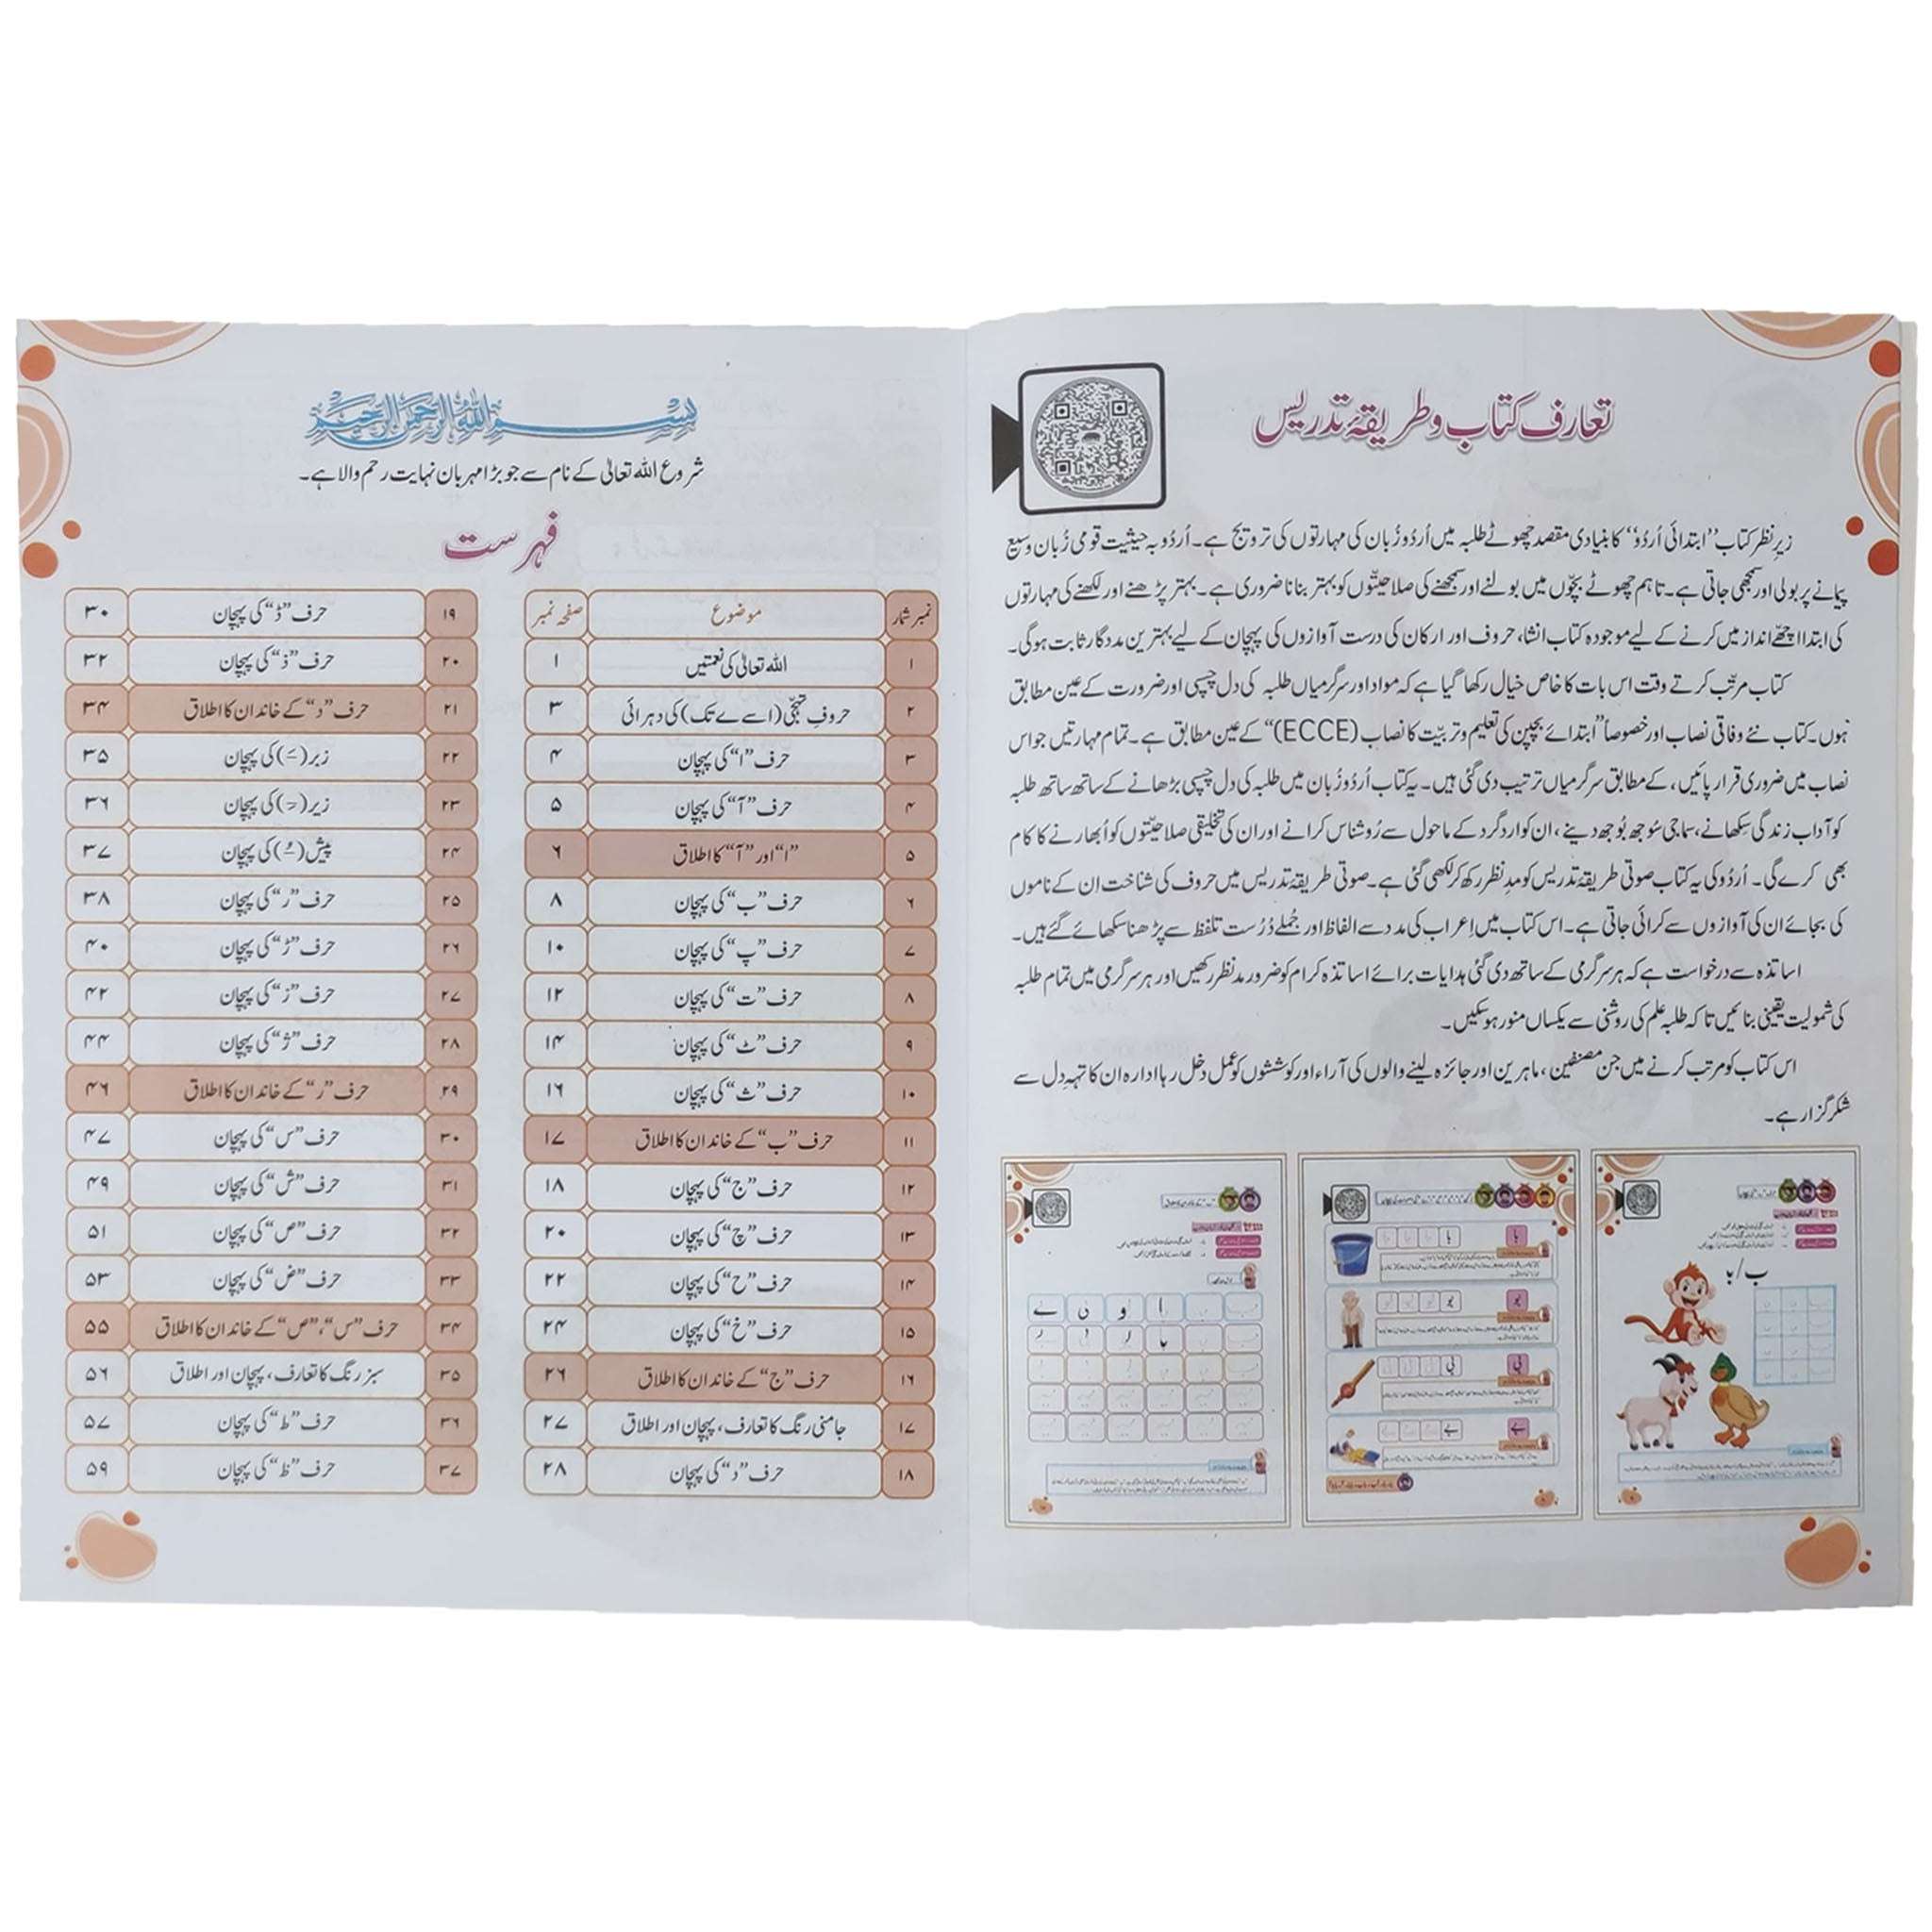 تعارف کتاب و طریقۂ تدریس
زیرِ نظر کتاب ’’ابتدائی اُردُو‘‘ کا بنیادی مقصد چھوٹے طلبہ میں اُردُو زُبان کی مہارتوں کی ترویج ہے۔ اُردُو بہ حیثیت قومی زُبان وسیع
پیمانے پر بولی اور سمجھی جاتی ہے۔ تاہم چھوٹے بچّوں میں بولنے اور سمجھنے کی صلاحیتّوں کو بہتر بنانا ضروری ہے۔ بہتر پڑھنے اور لکھنے کی مہارتوں
کی ابتدا اچھّے انداز میں کرنے کے لیے موجودہ کتاب انشا، حروف اور ارکان کی درست آوازوں کی پہچان کے لیے بہترین مددگار ثابت ہوگی۔
کتاب مرتّب کرتے وقت اس بات کا خاص خیال رکھا گیا ہے کہ مواد اور سرگرمیاں طلبہ کی دل چسپی اور ضرورت کے عین مطابق
ہوں۔ کتاب نئے وفاقی نصاب اور خصوصاً ”ابتدائے بچپن کی تعلیم و تربیّت کا نصاب (ECCE)“ کے عین مطابق ہے۔ تمام مہارتیں جو اس
نصاب میں ضروری قرار پائیں، کے مطابق سرگرمیاں ترتیب دی گئی ہیں۔ یہ کتاب اُردُو زُبان میں طلبہ کی دل چسپی بڑھانے کے ساتھ ساتھ طلبہ
کو آداب زندگی سِکھانے، سماجی سُوجھ بُوجھ دینے، ان کو اردگرد کے ماحول سے رُوشناس کرانے اور ان کی تخلیقی صلاحیّتوں کو اُبھارنے کا کام
بھی کرے گی۔ اُردُو کی یہ کتاب صوتی طریقۂ تدریس کو مدِنظر رکھ کر لکھی گئی ہے۔ صوتی طریقۂ تدریس میں حروف کی شناخت ان کے ناموں
کی بجائے ان کی آوازوں سے کرائی جاتی ہے۔ اس کتاب میں اِعراب کی مدد سے الفاظ اور جُملے دُرُست تلفظ سے پڑھنا سکھائے گئے ہیں۔
اساتذہ سے درخواست ہے کہ ہر سرگرمی کے ساتھ دی گئی ہدایات برائے اساتذہ کرام کو ضرور مدنظر رکھیں اور ہر سرگرمی میں تمام طلبہ
کی شمولیت یقینی بنائیں تاکہ طلبہ علم کی روشنی سے یکساں منور ہو سکیں۔
اس کتاب کو مرتب کرنے میں جن مصنفین، ماہرین اور جائزہ لینے والوں کی آراء اور کوششوں کو عمل دخل رہا ادارہ ان کا تہہِ دل سے
شکر گزار ہے۔
ب / بـ
ا و ی ے
با
با
بو
بو
بی
بی
بے
بے
بِسْمِ اللّٰهِ الرَّحْمٰنِ الرَّحِيْمِ
شروع اللہ تعالیٰ کے نام سے جو بڑا مہربان نہایت رحم والا ہے۔
فہرست
نمبر شمار موضوع صفحہ نمبر
۱ اللہ تعالیٰ کی نعمتیں ۱
۲ حروفِ تہجّی (ا سے ے تک) کی دہرائی ۳
۳ حرف ”ا“ کی پہچان ۴
۴ حرف ”آ“ کی پہچان ۵
۵ ”ا“ اور ”آ“ کا اطلاق ۶
۶ حرف ”ب“ کی پہچان ۸
۷ حرف ”پ“ کی پہچان ۱۰
۸ حرف ”ت“ کی پہچان ۱۲
۹ حرف ”ٹ“ کی پہچان ۱۴
۱۰ حرف ”ث“ کی پہچان ۱۶
۱۱ حرف ”ب“ کے خاندان کا اطلاق ۱۷
۱۲ حرف ”ج“ کی پہچان ۱۸
۱۳ حرف ”چ“ کی پہچان ۲۰
۱۴ حرف ”ح“ کی پہچان ۲۲
۱۵ حرف ”خ“ کی پہچان ۲۴
۱۶ حرف ”ج“ کے خاندان کا اطلاق ۲۶
۱۷ جامنی رنگ کا تعارف، پہچان اور اطلاق ۲۷
۱۸ حرف ”د“ کی پہچان ۲۸
۱۹ حرف ”ڈ“ کی پہچان ۳۰
۲۰ حرف ”ذ“ کی پہچان ۳۲
۲۱ حرف ”د“ کے خاندان کا اطلاق ۳۴
۲۲ زبر (ـَ) کی پہچان ۳۵
۲۳ زیر (ـِ) کی پہچان ۳۶
۲۴ پیش (ـُ) کی پہچان ۳۷
۲۵ حرف ”ر“ کی پہچان ۳۸
۲۶ حرف ”ڑ“ کی پہچان ۴۰
۲۷ حرف ”ز“ کی پہچان ۴۲
۲۸ حرف ”ژ“ کی پہچان ۴۴
۲۹ حرف ”ر“ کے خاندان کا اطلاق ۴۶
۳۰ حرف ”س“ کی پہچان ۴۷
۳۱ حرف ”ش“ کی پہچان ۴۹
۳۲ حرف ”ص“ کی پہچان ۵۱
۳۳ حرف ”ض“ کی پہچان ۵۳
۳۴ حرف ”س“، ”ص“ کے خاندان کا اطلاق ۵۵
۳۵ سبز رنگ کا تعارف، پہچان اور اطلاق ۵۶
۳۶ حرف ”ط“ کی پہچان ۵۷
۳۷ حرف ”ظ“ کی پہچان ۵۹